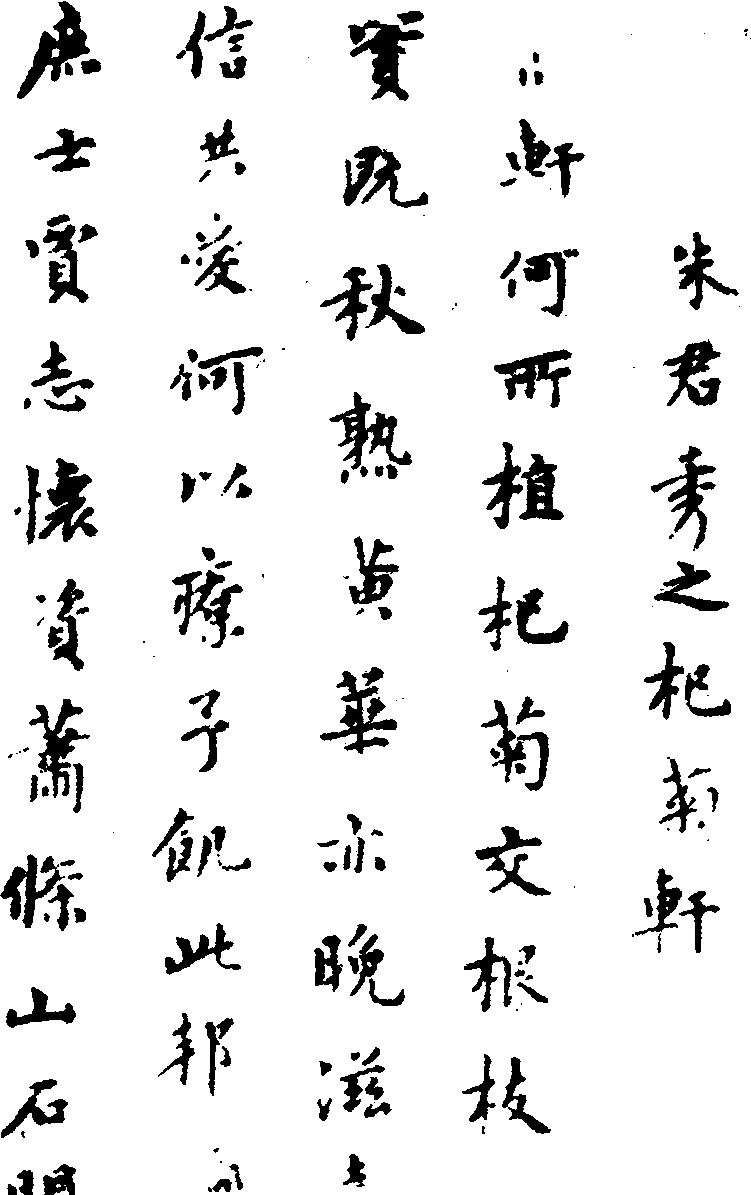 朱君秀之杞菊軒
軒何所植杞菊交根枝
實既秋熟黄華亦晚滋
信共愛何以療子飢此邦
庶士賓志懷資蕭條山石間